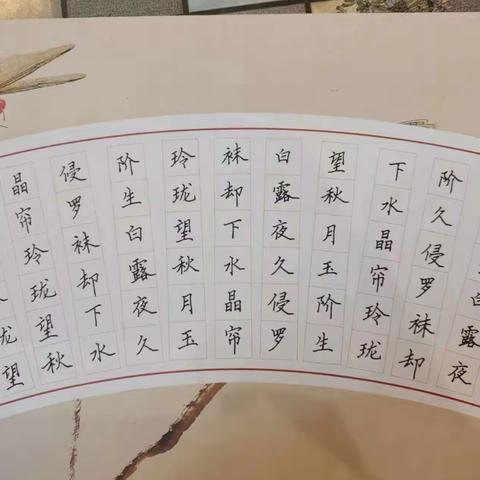 白露夜
阶久侵罗袜却
下水晶帘玲珑
望秋月玉阶生
白露夜久侵罗
袜却下水晶帘
玲珑望秋月玉
阶生白露夜久
侵罗袜却下水
晶帘玲珑望秋
珑望